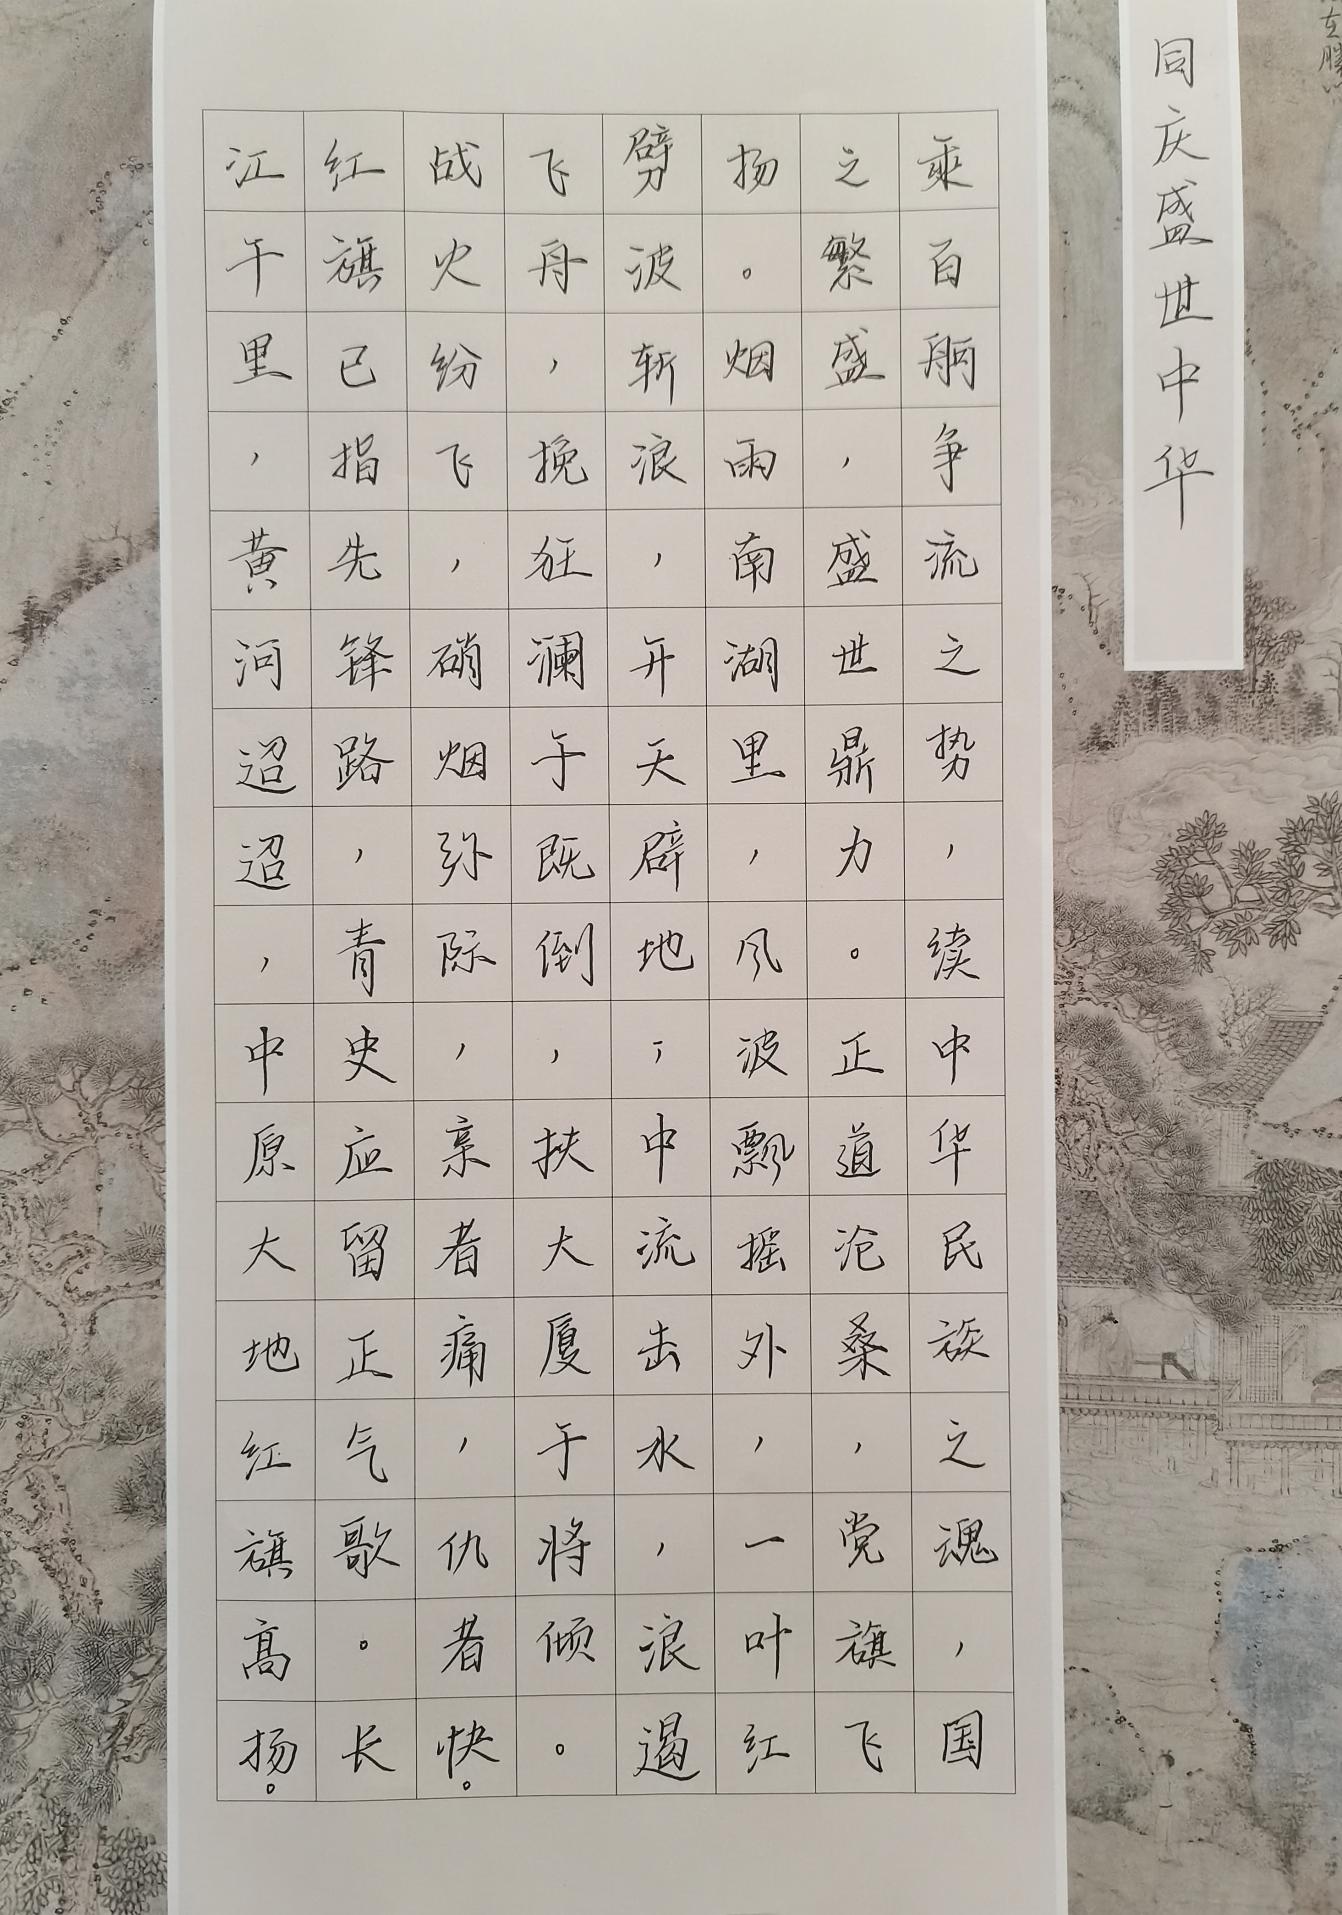 同庆盛世中华
乘百舸争流之势，续中华民族之魂，国
之繁盛，盛世鼎力。正道沧桑，党旗飞
扬。烟雨南湖里，风波飘摇外，一叶红
劈波斩浪，开天辟地；中流击水，浪遏
飞舟，挽狂澜于既倒，扶大厦于将倾。
战火纷飞，硝烟弥际，亲者痛，仇者快。
红旗已指先锋路，青史应留正气歌。长
江千里，黄河迢迢，中原大地红旗高扬。